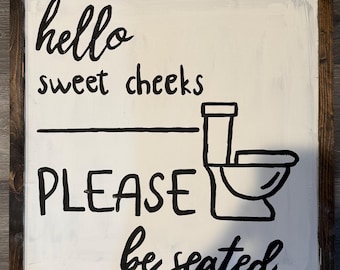 hello
sweet cheeks
PLEASE
be seated